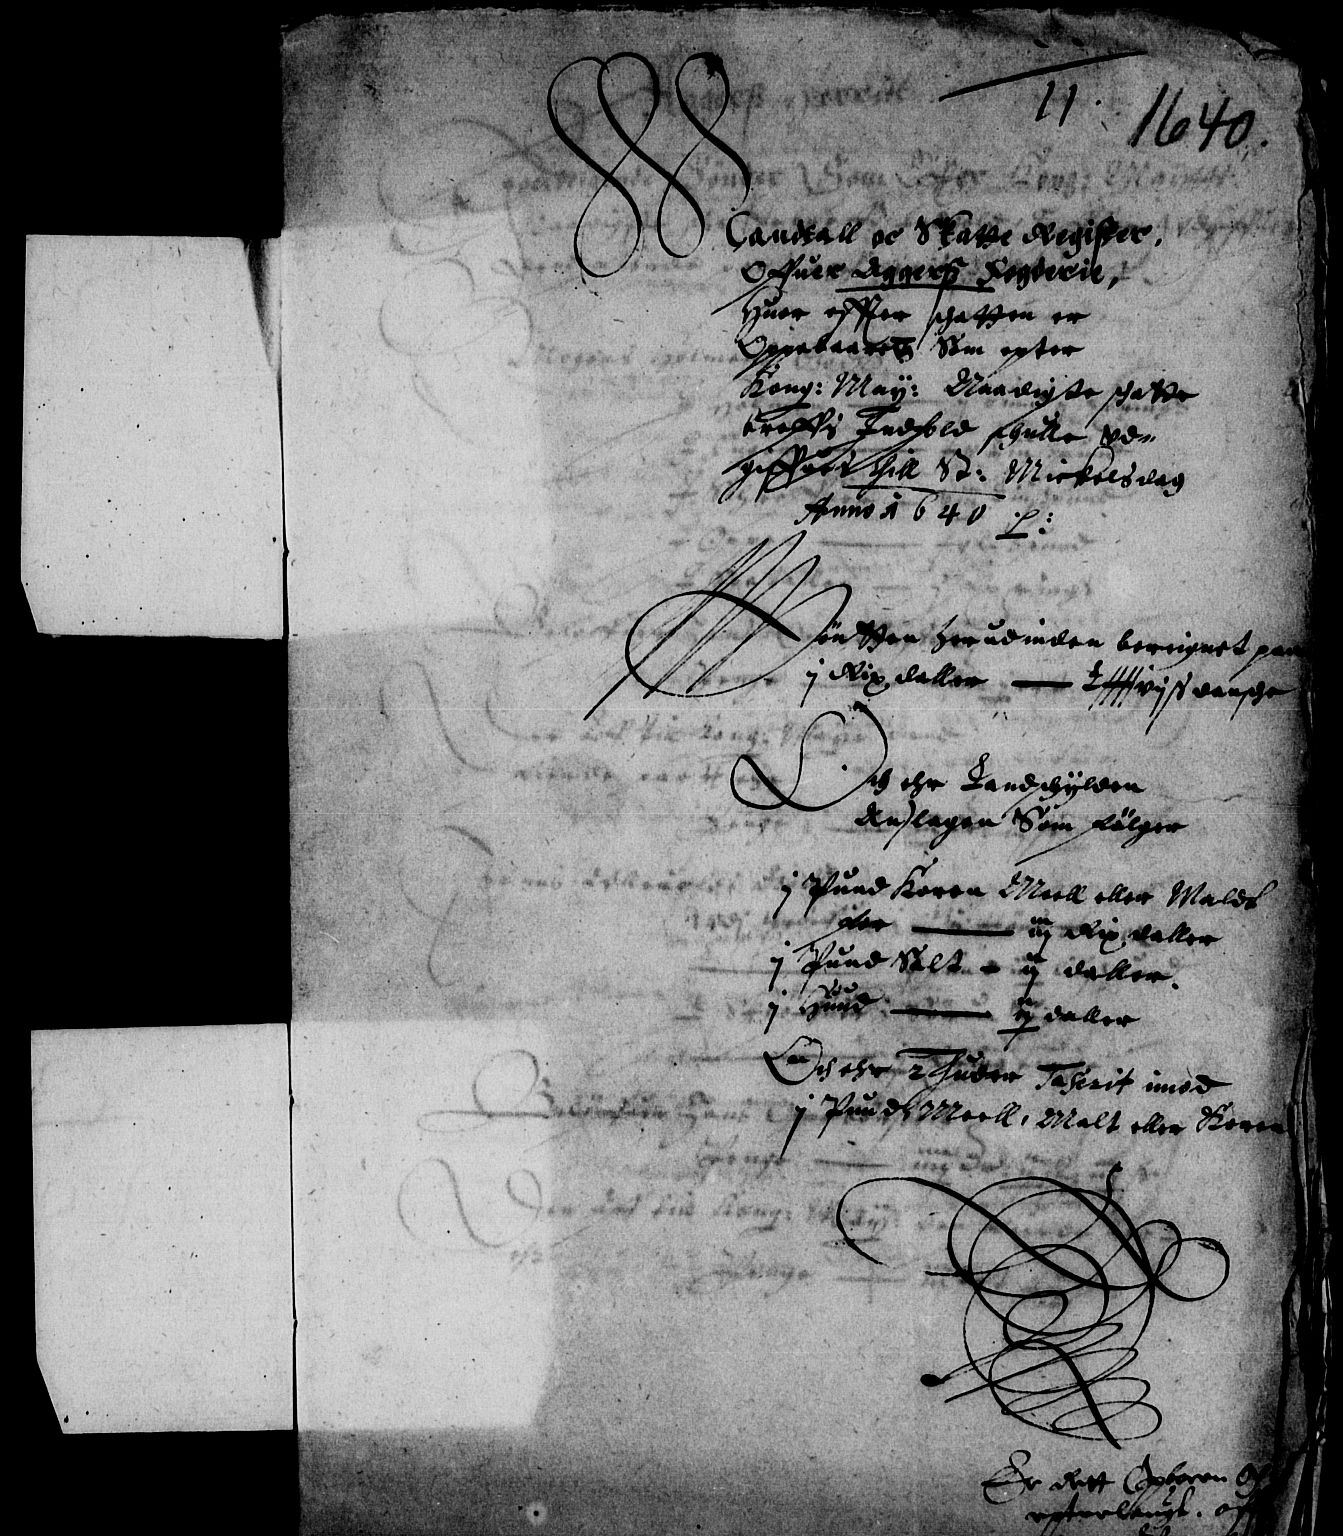 11.
1640.
Mandtall oc Skatte Register,
Offuer Aggers fogderie,
Huor effter schatten er
Oppebaaren Som epter
Kong: May: Naadigste schatte
breffs Indhold schulle vd-
giffues thill St: Mickelsdag
Anno 1640 p:
Mönten herudinden bereignet paa
j Rix daller — vjs dansche
Och ehr Landschylden
Anslagen Som fölger
j Pund Koren Meell eller Maldt
for — iij Rix daller
j Pund Salt - ij daller.
j Huud — ij daller
Och ehr 2 huder Taxerit imod
j Pund Meell, Malt eller Koren
Er Rett